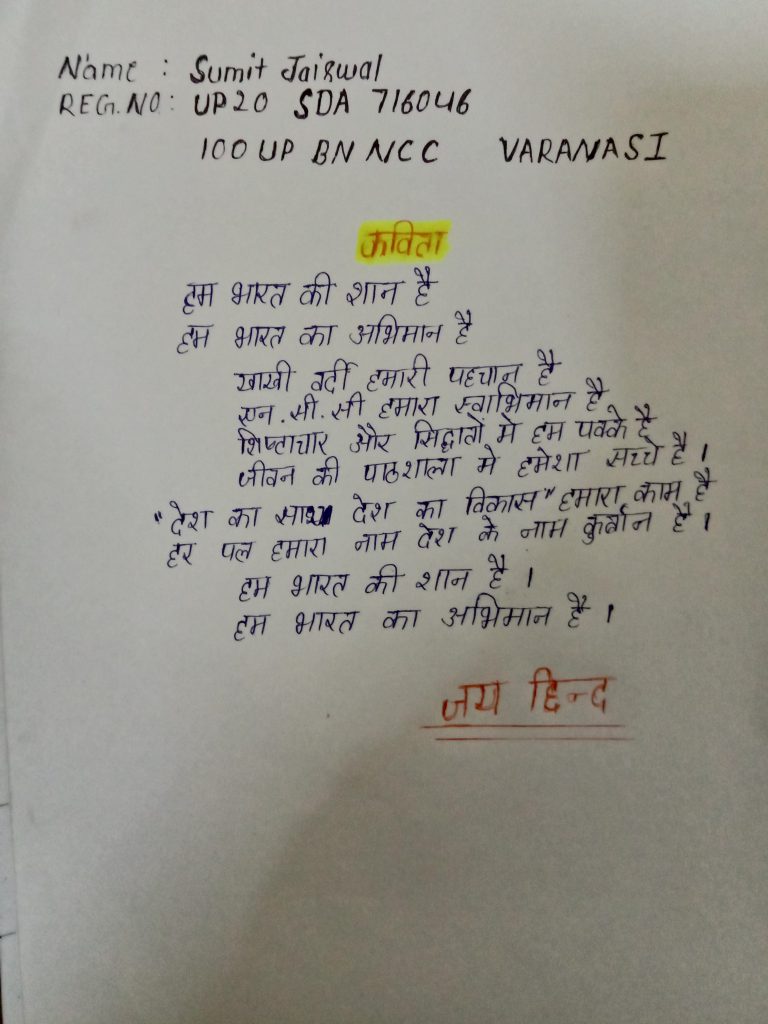 Name : Sumit Jaiswal
REG.NO: UP20 SDA 716046
100 UP BN NCC VARANASI
कविता
हम भारत की शान है
हम भारत का अभिमान है
खाखी वर्दी हमारी पहचान है
एन.सी.सी हमारा स्वाभिमान है
शिष्टाचार और सिद्धातों मे हम पक्के है
जीवन की पाठशाला मे हमेशा सच्चे है ।
"देश का साथ देश का विकास" हमारा काम है
हर पल हमारा नाम देश के नाम कुर्बान है ।
हम भारत की शान है ।
हम भारत का अभिमान है ।
जय हिन्द